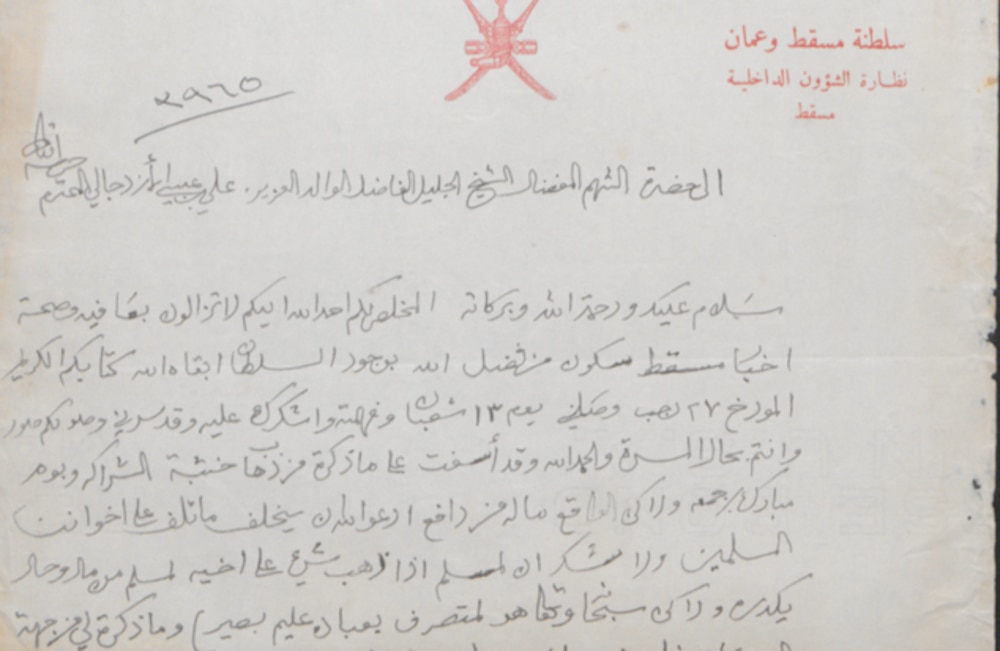 سلطنة مسقط وعمان
نظارة الشؤون الداخلية
مسقط
٢٩٦٥
الحضرة الشهم المفضال الشيخ الجليل الفاضل الوالد العزيز علي بن المحترم
سلام عليك ورحمة الله وبركاته المخلص لكم احمد الله اليكم لا تزالون بعافيه وصحة
اخبار مسقط سكون من فضل الله بوجود السلطان ابقاه الله كتابكم الكريم
المورخ ٢٧ رجب وصلني يوم ١٣ شعبان وفهمته واشكرك عليه وقد سرني وصولكم صور
وانتم بحال المسرة والحمد لله وقد أسفت على ما ذكرته من خشبة
مبارك بن جمعه ولاكن الواقع ما له من دافع ادعوا الله ان يخلف ما تلف على اخواننا
المسلمين ولا شك ان المسلم اذا ذهب شيء على اخيه المسلم من مال وحال
يكدره ولاكن سبحانه وتعالى هو المتصرف بعباده عليم بصير وما ذكرته لي من جهة